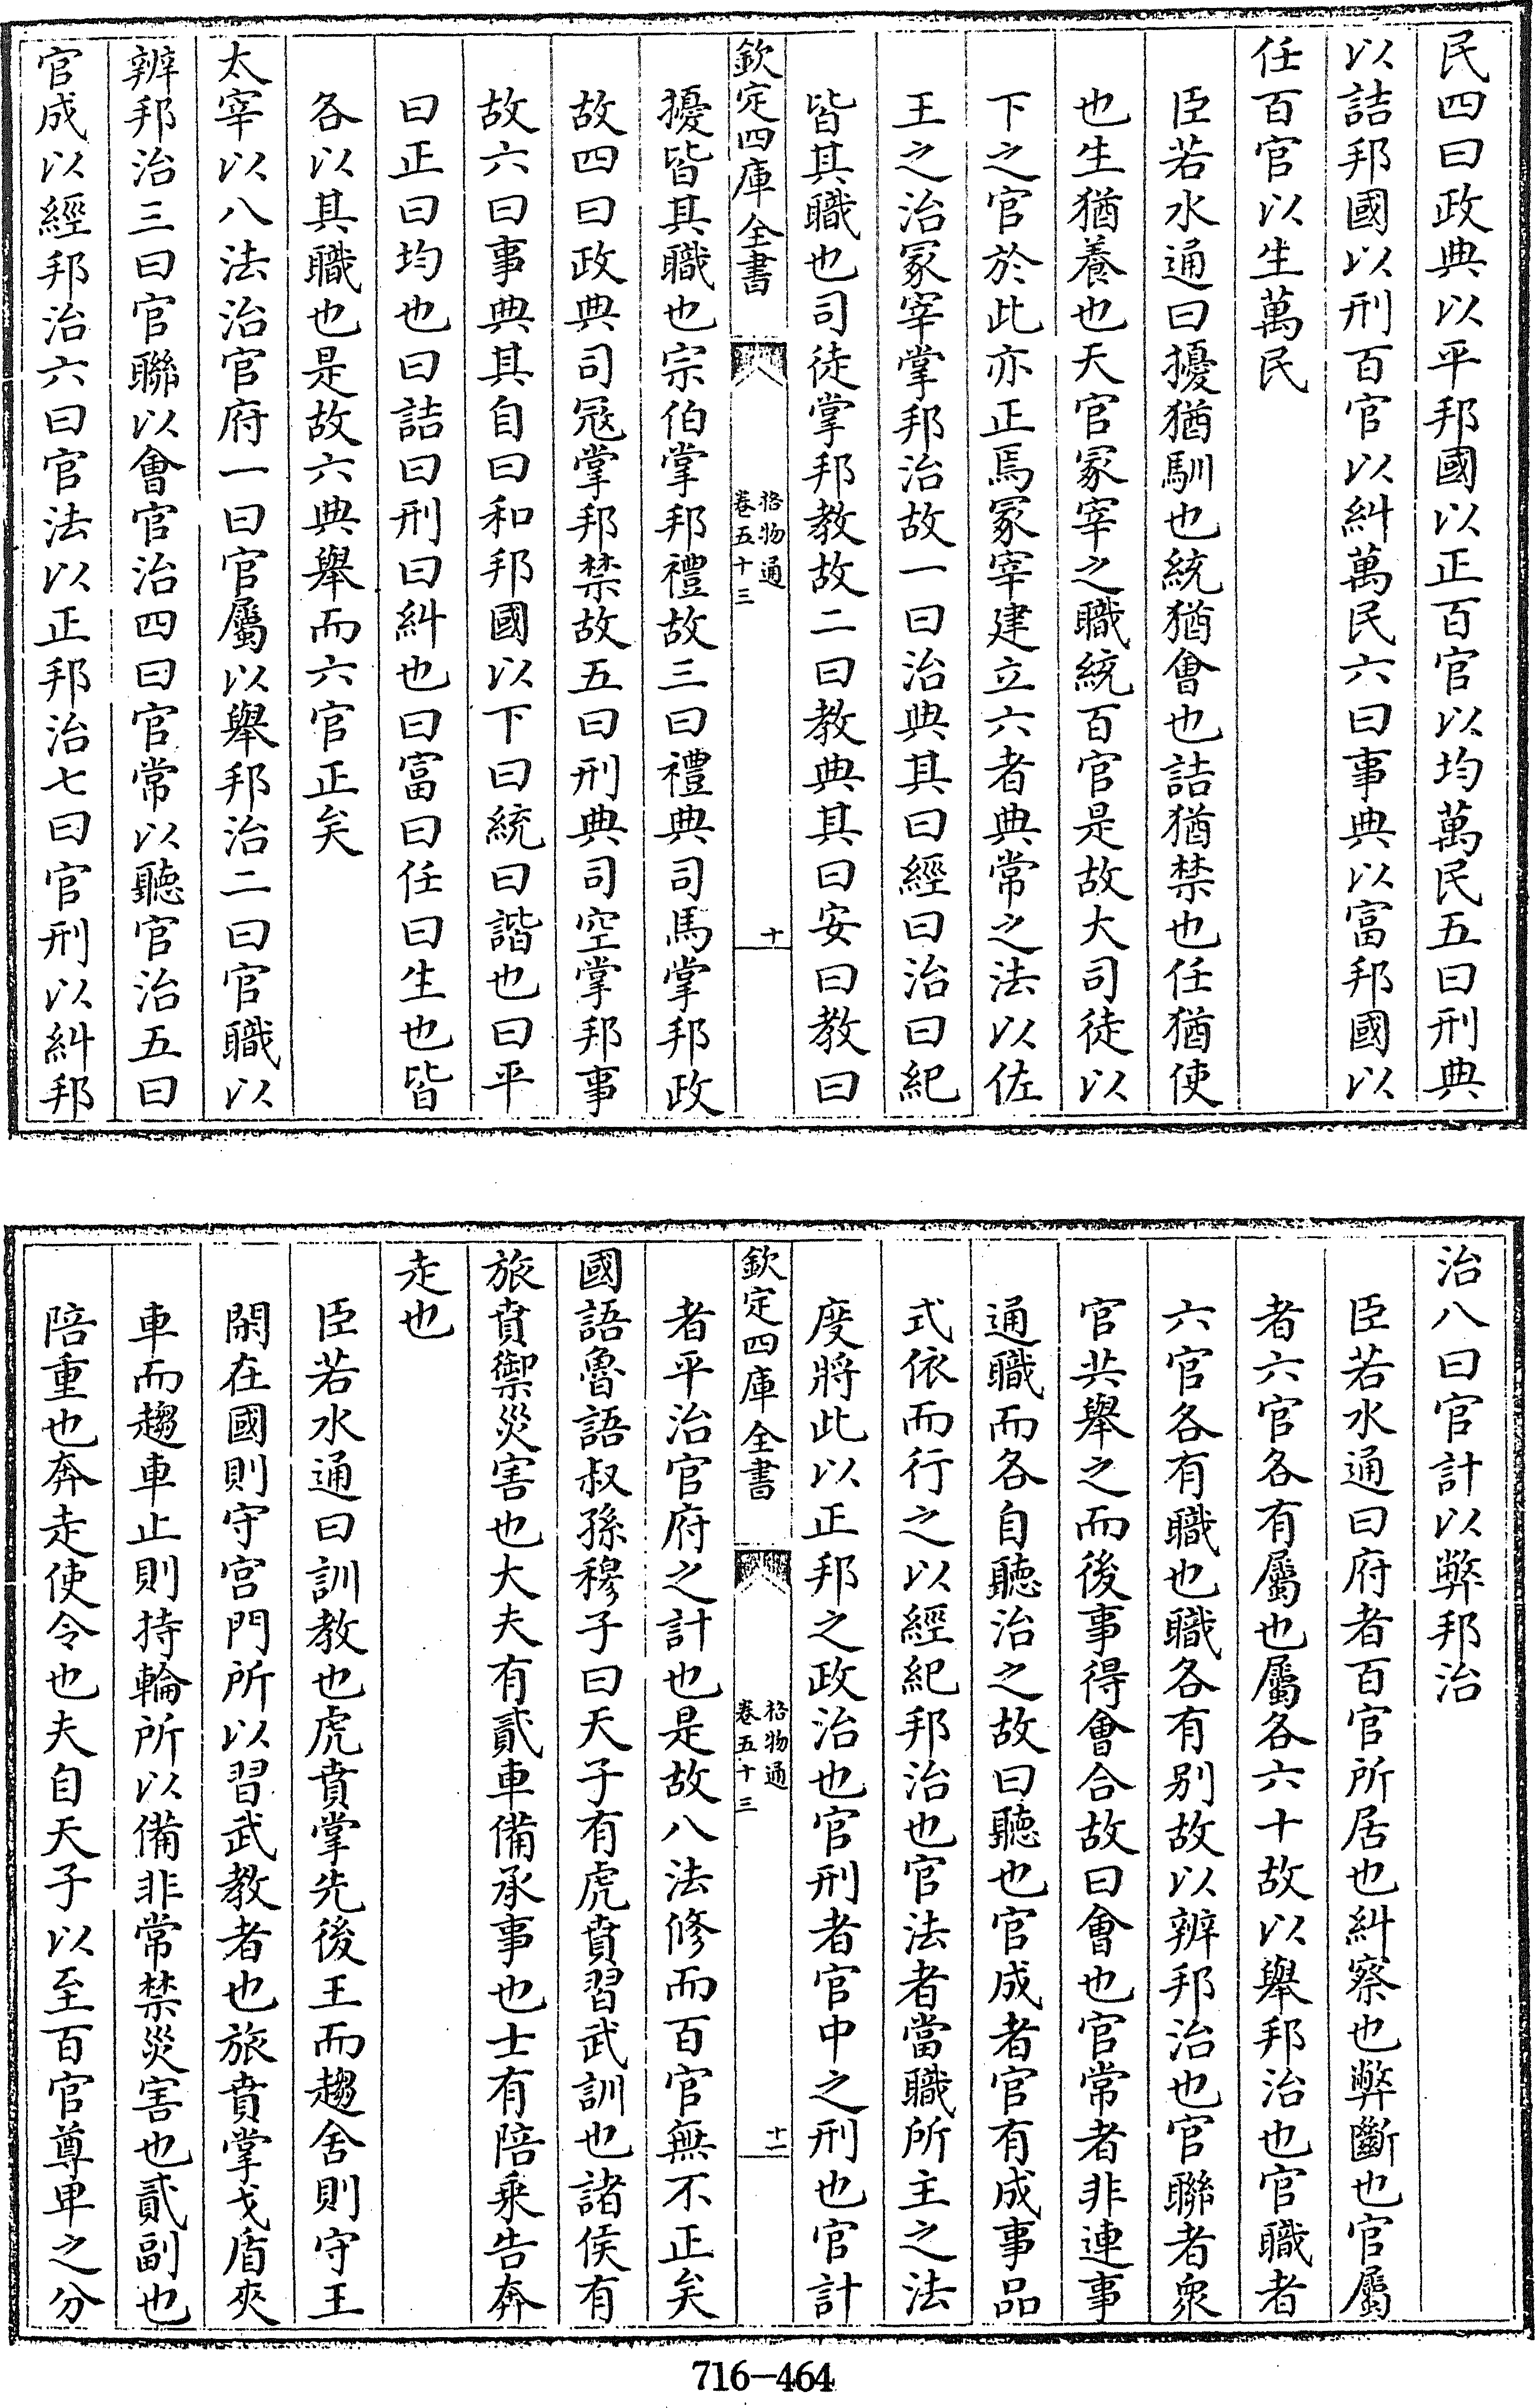 民四曰政典以平邦國以正百官以均萬民五曰刑典
以詰邦國以刑百官以糾萬民六曰事典以富邦國以
任百官以生萬民
臣若水通曰擾猶馴也統猶會也詰猶禁也任猶使
也生猶養也天官冢宰之職統百官是故大司徒以
下之官於此亦正焉冢宰建立六者典常之法以佐
王之治冢宰掌邦治故一曰治典其曰經曰治曰紀
皆其職也司徒掌邦教故二曰教典其曰安曰教曰
欽定四庫全書
格物通
卷五十三
十
擾皆其職也宗伯掌邦禮故三曰禮典司馬掌邦政
故四曰政典司冦掌邦禁故五曰刑典司空掌邦事
故六曰事典其自曰和邦國以下曰統曰諧也曰平
曰正曰均也曰詰曰刑曰糾也曰富曰任曰生也皆
各以其職也是故六典舉而六官正矣
太宰以八法治官府一曰官屬以舉邦治二曰官職以
辨邦治三曰官聯以會官治四曰官常以聽官治五曰
官成以經邦治六曰官法以正邦治七曰官刑以糾邦
治八曰官計以弊邦治
臣若水通曰府者百官所居也糾察也弊斷也官屬
者六官各有屬也屬各六十故以舉邦治也官職者
六官各有職也職各有别故以辨邦治也官聯者衆
官共舉之而後事得會合故曰會也官常者非連事
通職而各自聽治之故曰聽也官成者官有成事品
式依而行之以經紀邦治也官法者當職所主之法
度將此以正邦之政治也官刑者官中之刑也官計
欽定四庫全書
格物通
卷五十三
十一
者平治官府之計也是故八法修而百官無不正矣
國語魯語叔孫穆子曰天子有虎賁習武訓也諸侯有
旅賁禦災害也大夫有貳車備承事也士有陪乘告奔
走也
臣若水通曰訓教也虎賁掌先後王而趨舍則守王
閑在國則守宫門所以習武教者也旅賁掌戈盾夾
車而趨車止則持輪所以備非常禁災害也貳副也
陪重也奔走使令也夫自天子以至百官尊卑之分
716-464